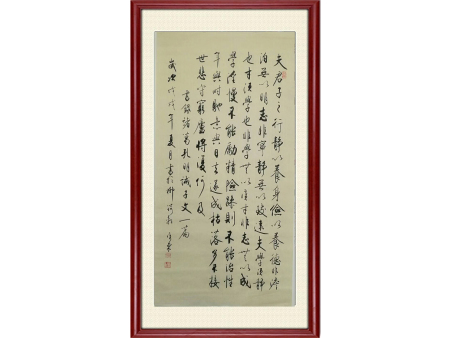 夫君子之行静以養身儉以養德非淡
泊無以明志非寧静無以致遠夫學須静
也才須學也非學無以廣才非志無以成
學淫慢不能勵精險躁則不能治性
年與時馳意與日去遂成枯落多不接
世悲守窮廬将復何及
書録諸葛孔明誡子文一篇
歲次戊戌年夏月書於